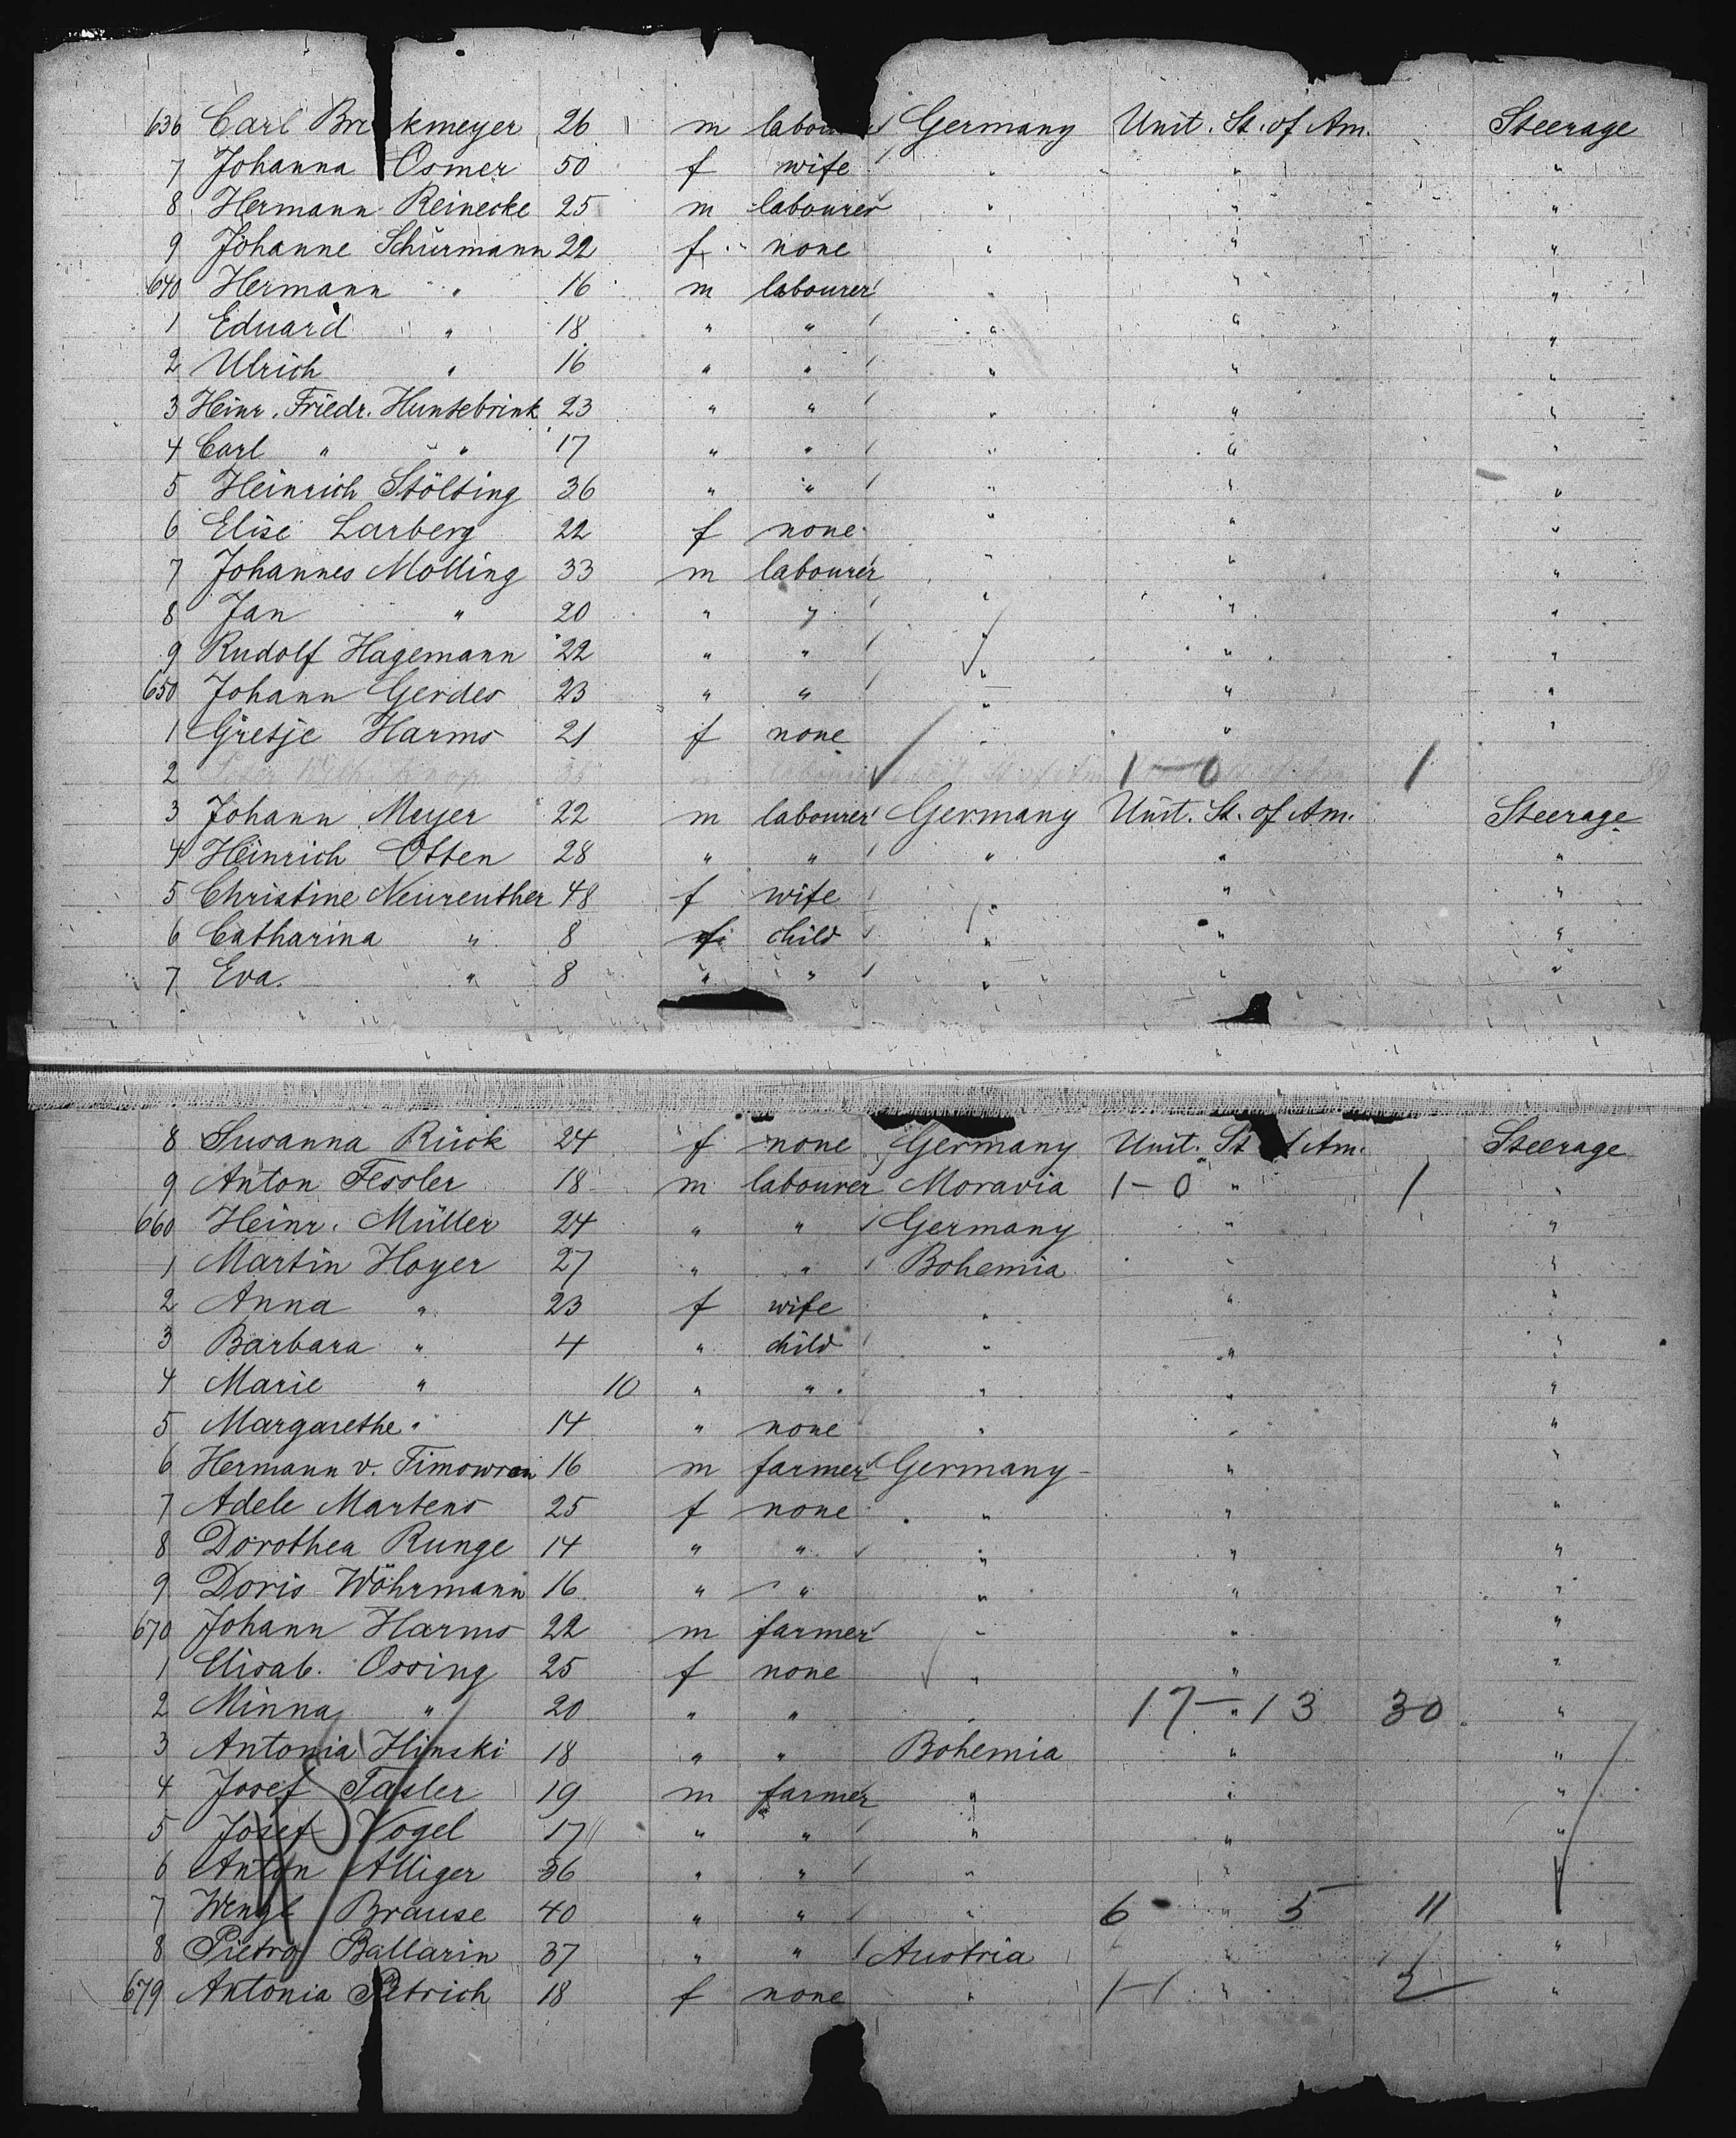 636 Carl Br kmeyer 26 m labou Germany Unit. St. of Am. Steerage
7 Johanna Osmer 50 f wife " " "
8 Hermann Reinecke 25 m labourer " " "
9 Johanne Schürmann 22 f none " " "
640 Hermann " 16 m labourer " " "
1 Eduard " 18 " " " " "
2 Ulrich " 16 " " " " "
3 Heinr. Friedr. Huntebrink 23 " " " " "
4 Carl " " 17 " " " " "
5 Heinrich Stölting 36 " " " " "
6 Elise Larberg 22 f none " " "
7 Johannes Mölling 33 m labourer " " "
8 Jan " 20 " " " " "
9 Rudolf Hagemann 22 " " " " "
650 Johann Gerdes 23 " " " " "
1 Gretje Harms 21 f none " " "
2 1-0 1
3 Johann Meyer 22 m labourer Germany Unit. St. of Am. Steerage
4 Heinrich Otten 28 " " " " "
5 Christine Neureuther 48 f wife " " "
6 Catharina " 8 f child " " "
7 Eva. " 8 " " " " "
8 Susanna Rück 24 f none Germany Unit. St Am. Steerage
9 Anton Fessler 18 m labourer Moravia 1-0 " 1 "
660 Heinr. Müller 24 " " Germany " "
1 Martin Hoyer 27 " " Bohemia " "
2 Anna " 23 f wife " " "
3 Barbara " 4 " child " " "
4 Marie " 10 " " " " "
5 Margarethe " 14 " none " " "
6 Hermann v. 16 m farmer Germany " "
7 Adele Martens 25 f none " " "
8 Dorothea Runge 14 " " " " "
9 Doris Wöhrmann 16 " " " " "
670 Johann Harms 22 m farmer " " "
1 Elisab. Ossing 25 f none " " "
2 Minna " 20 " " " 17-13 " 30 "
3 Antonia Hinski 18 " " Bohemia " "
4 Josef Tasler 19 m farmer " " "
5 Josef Vogel 17 " " " " "
6 Anton Alliger 36 " " " " "
7 Wenzl Brause 40 " " " 6 " 5 11 "
8 Pietro Ballarin 37 " " Austria " "
679 Antonia Petrich 18 f none " 1-1 " 2 "